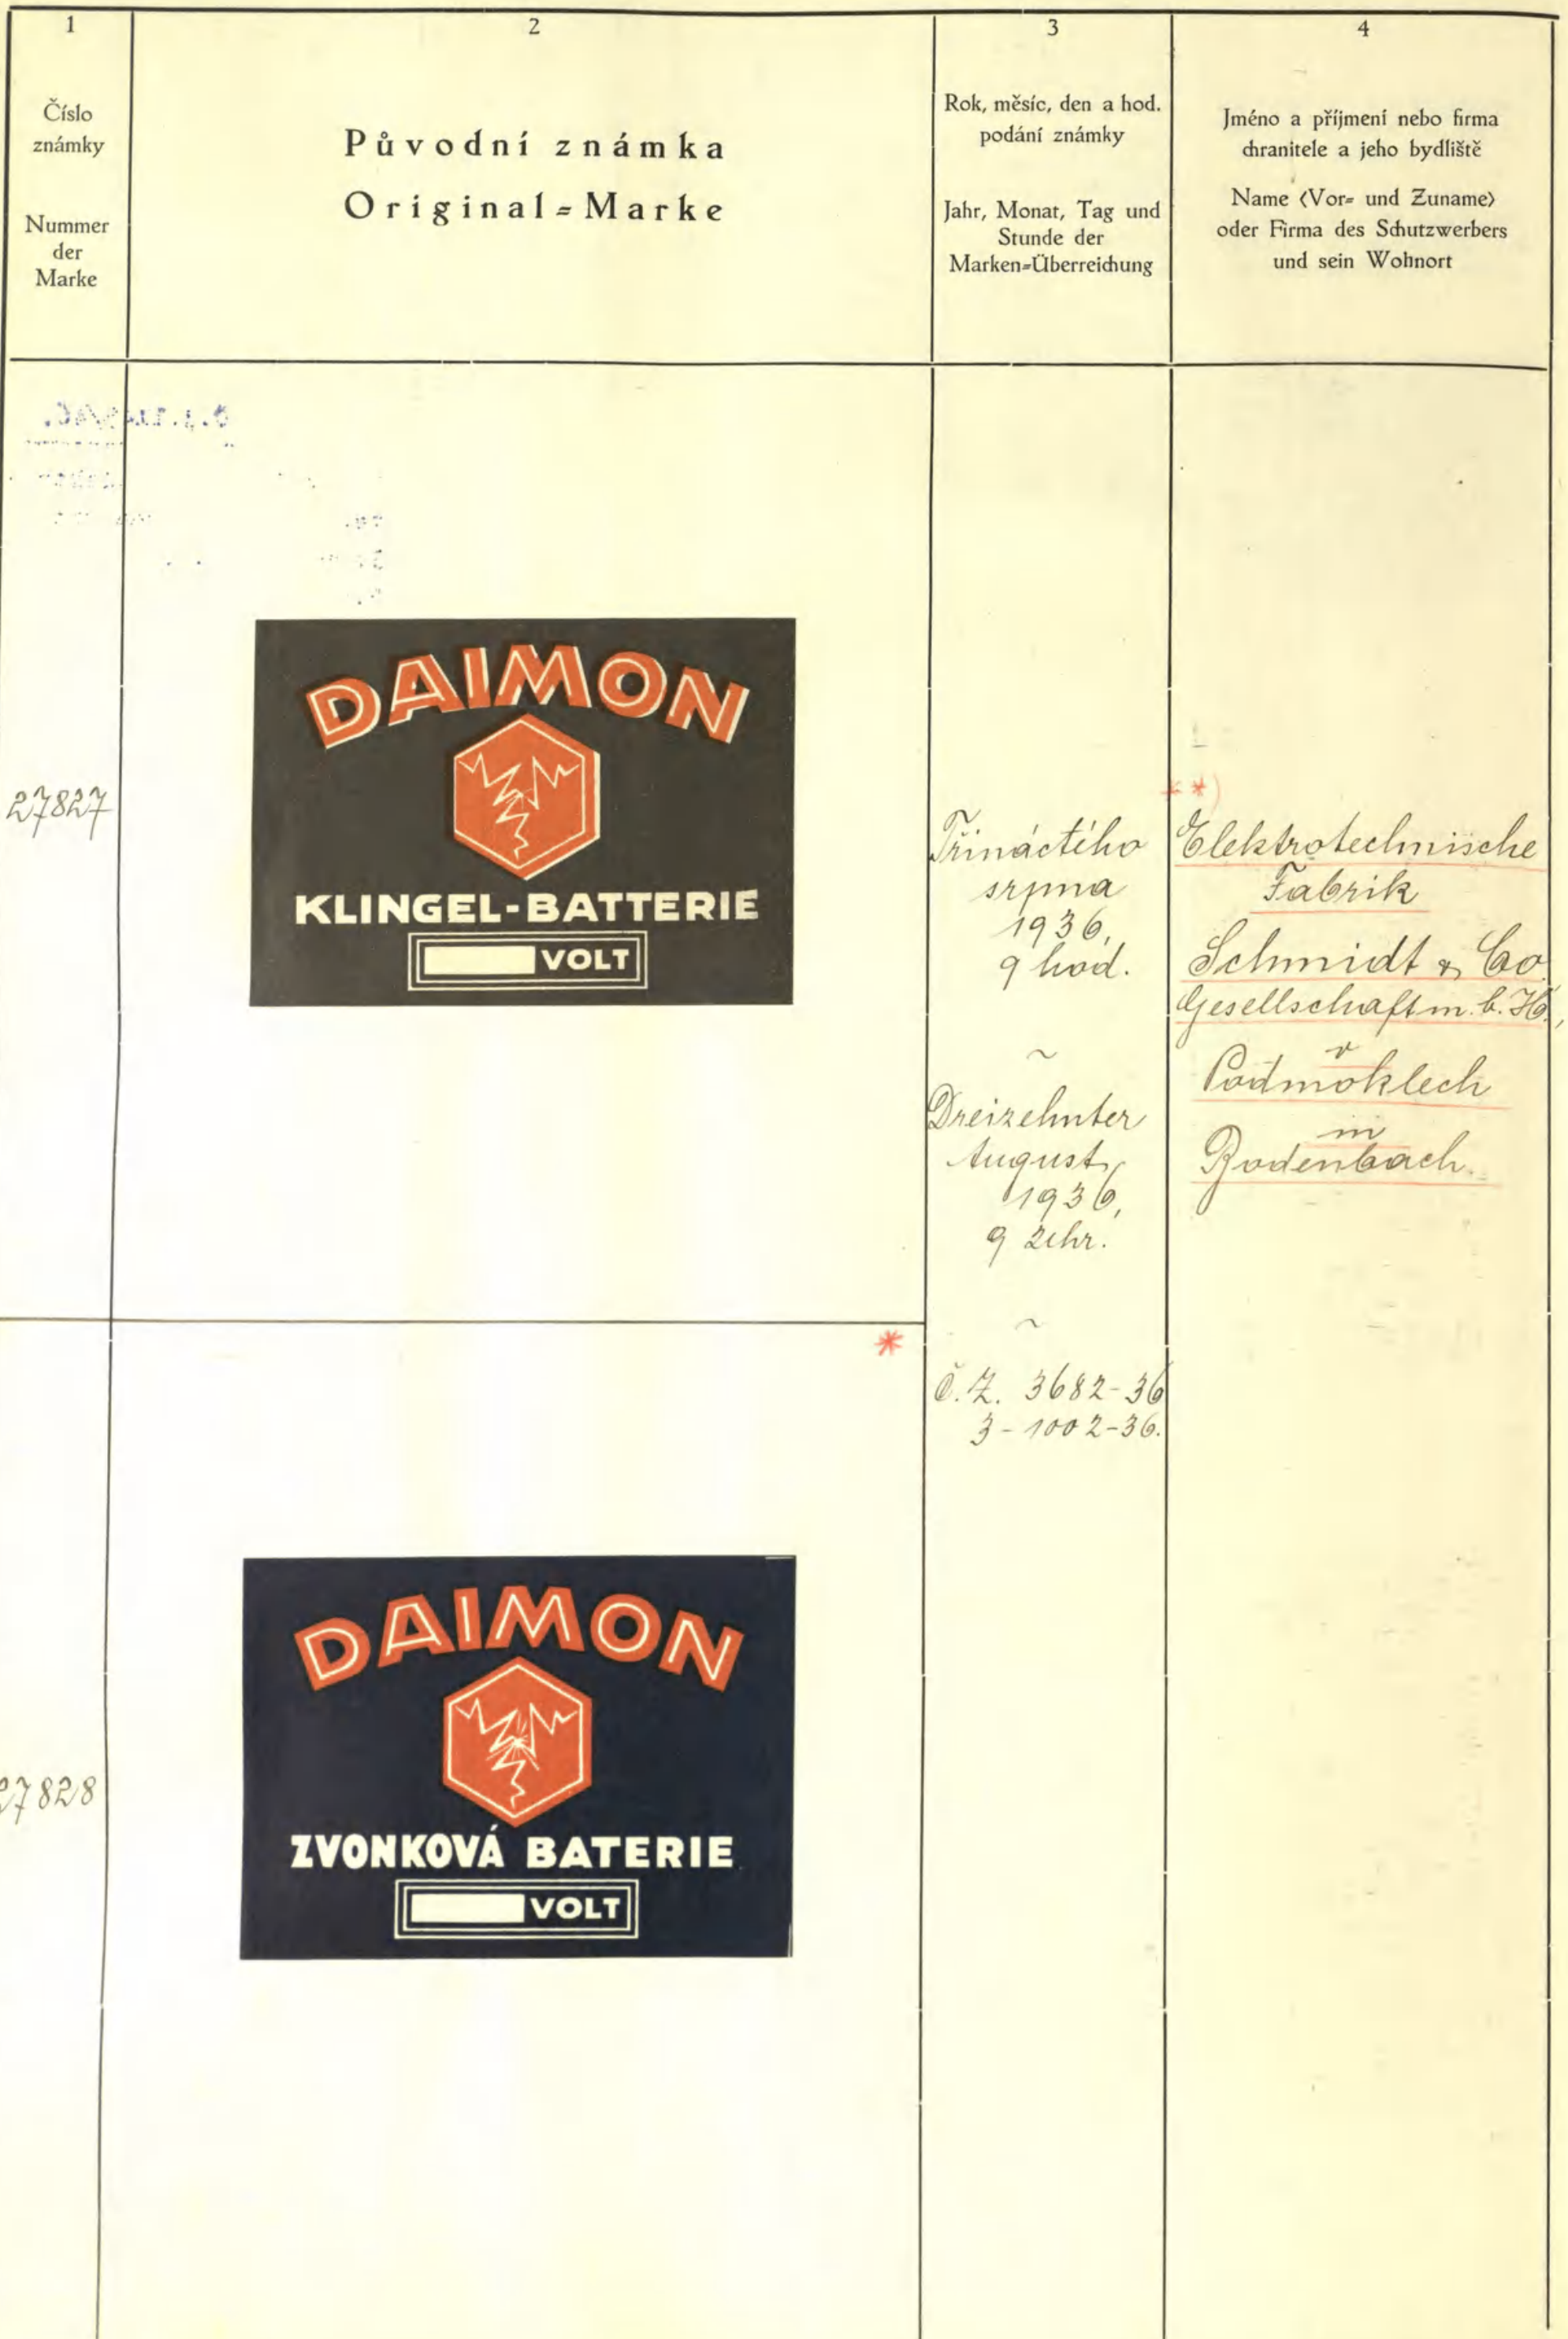 1
Číslo
známky
Nummer
der
Marke
2
Původní známka
Original=Marke
3
Rok, měsíc, den a hod.
podání známky
Jahr, Monat, Tag und
Stunde der
Marken=Überreichung
4
Jméno a příjmení nebo firma
chranitele a jeho bydliště
Name (Vor= und Zuname)
oder Firma des Schutzwerbers
und sein Wohnort
27827
DAIMON
KLINGEL-BATTERIE
VOLT
Třináctého
srpna
1936,
9 hod.
~
Dreizehnter
August
1936,
9 Uhr.
~
Č.Z. 3682-36
3-1002-36.
**)
Elektrotechnische
Fabrik
Schmidt & Co
Gesellschaft m. b. H.,
v
Podmoklech
in
Bodenbach.
*
27828
DAIMON
ZVONKOVÁ BATERIE
VOLT